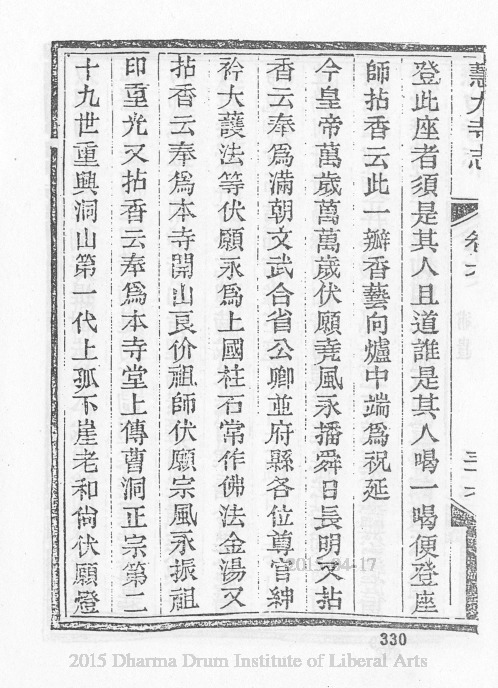 慧大寺志
卷六
三十六
登此座者須是其人且道誰是其人喝一喝便登座
師拈香云此一瓣香爇向爐中端爲祝延
今皇帝萬歲萬萬歲伏願堯風永播舜日長明又拈
香云奉爲滿朝文武合省公卿並府縣各位尊官紳
衿大護法等伏願永爲上國柱石常作佛法金湯又
拈香云奉爲本寺開山良价祖師伏願宗風永振祖
印重光又拈香云奉爲本寺堂上傳曹洞正宗第二
十九世重興洞山第一代上孤下崖老和尙伏願燈
2015-04-17
330
2015 Dharma Drum Institute of Liberal Arts